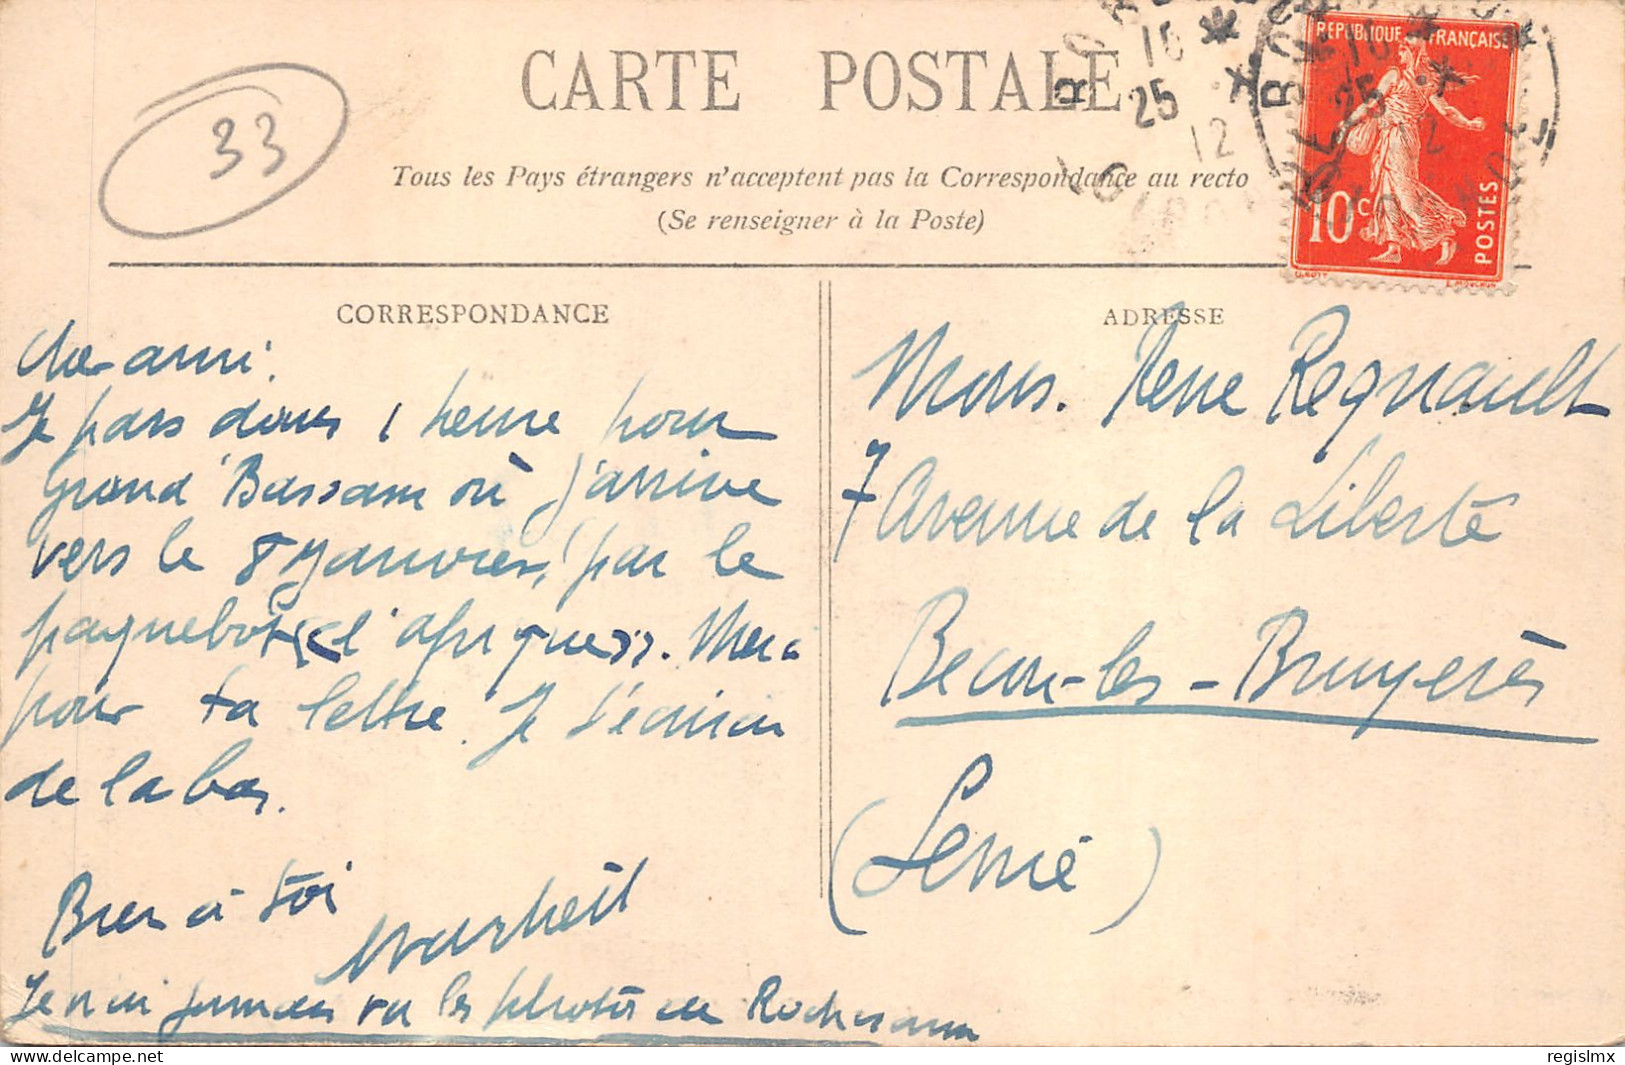 33
CARTE POSTALE
Tous les Pays étrangers n'acceptent pas la Correspondance au recto
(Se renseigner à la Poste)
BORDEAUX
16
25
12
GIRONDE
RÉPUBLIQUE FRANÇAISE
10c
POSTES
CORRESPONDANCE
Cher ami.
Je pars dans 1 heure pour
Grand Bassam où j'arrive
vers le 8 Janvier, par le
paquebot « l'afrique ». Merci
pour ta lettre. Je t'écrirai
de la bas.
Bien à toi
Je n'ai jamais vu les photos de
ADRESSE
Mons. Rene Regnault
7 Avenue de la Liberté
Becon-les-Bruyerès
(Seine)
delcampe.net
regislmx